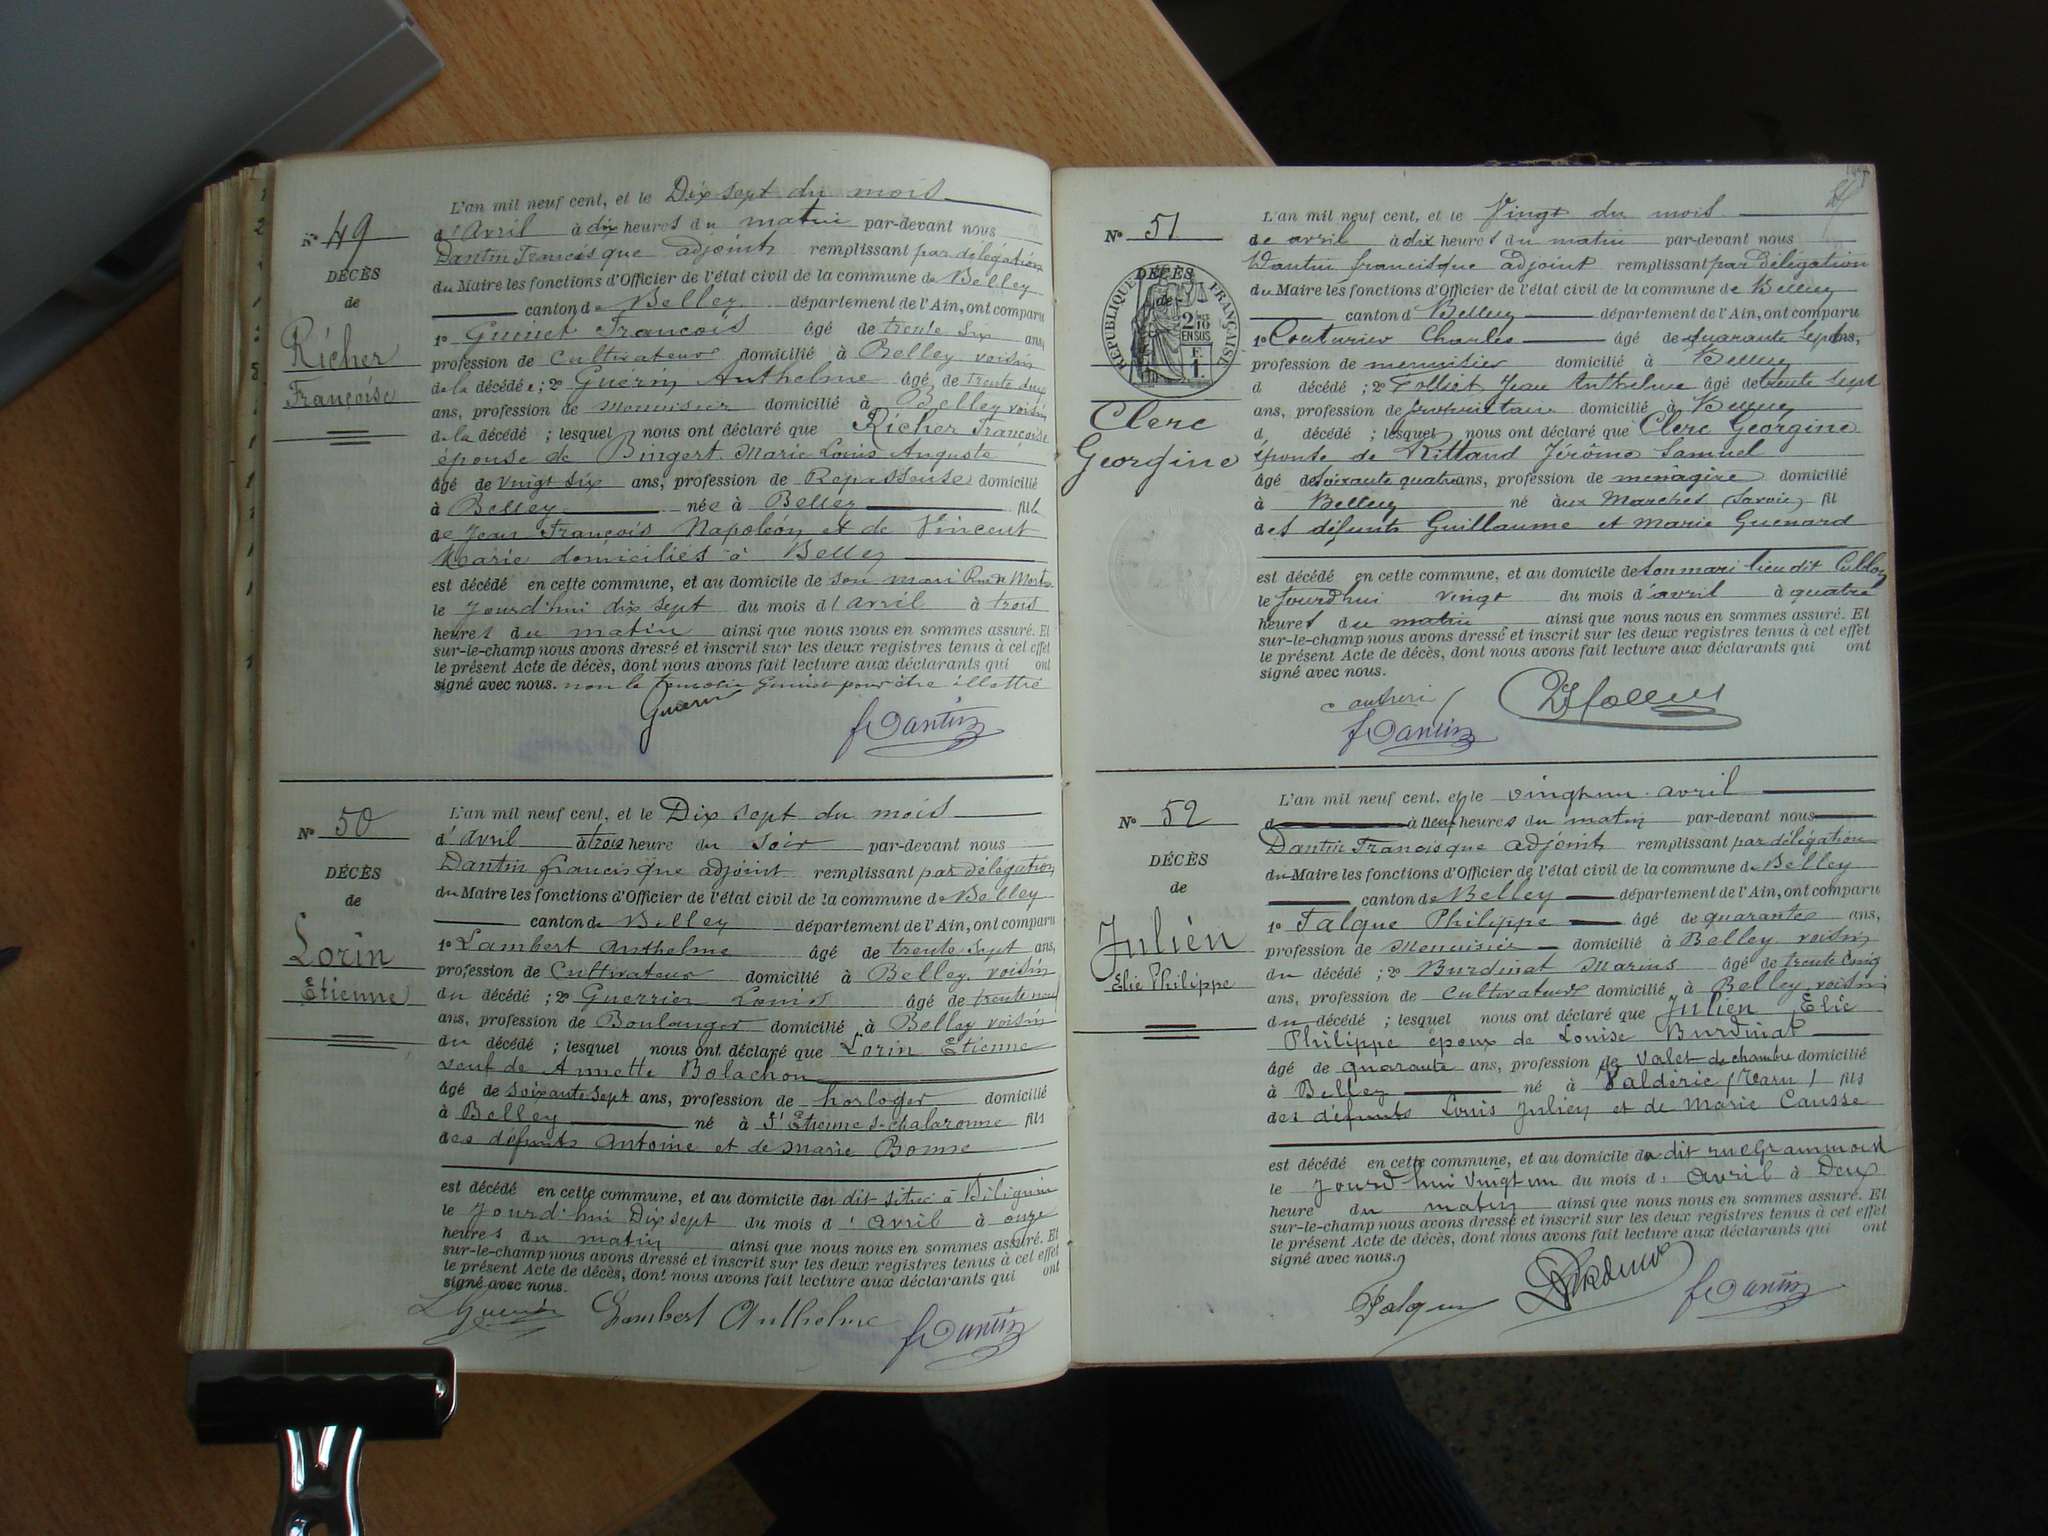 L'an mil neuf cent, et le Dix sept du mois
N° 49
d'Avril à dix heures du matin par-devant nous
Dantin Francisque adjoint remplissant par délégation
DÉCÈS
du Maire les fonctions d'Officier de l'état civil de la commune de Belley
de
canton de Belley département de l'Ain, ont comparu
Richer
1° Guinet François âgé de trente six ans,
profession de Cultivateur domicilié à Belley voisin
Françoise
de la décédée ; 2° Guérin Anthelme âgé de trente deux
ans, profession de Menuisier domicilié à Belley voisin
de la décédé ; lesquel nous ont déclaré que Richer Françoise
épouse de Bingert Marie Louis Auguste
âgé de vingt six ans, profession de Repasseuse domicilié
à Belley née à Belley fille
de Jean François Napoléon et de Vincent
Marie domiciliés à Belley
est décédé en cette commune, et au domicile de son mari
le jourd'hui dix sept du mois d'avril à trois
heures du matin ainsi que nous nous en sommes assuré. Et
sur-le-champ nous avons dressé et inscrit sur les deux registres tenus à cet effet
le présent Acte de décès, dont nous avons fait lecture aux déclarants qui ont
signé avec nous. non le temoin Guinet pour être illettré
Guerin
f Dantin
L'an mil neuf cent, et le Dix sept du mois
N° 50
d'Avril à trois heure du soir par-devant nous
Dantin francisque adjoint remplissant par délégation
DÉCÈS
du Maire les fonctions d'Officier de l'état civil de la commune de Belley
de
canton de Belley département de l'Ain, ont comparu
Lorin
1° Lambert Anthelme âgé de trente sept ans,
profession de Cultivateur domicilié à Belley voisin
Etienne
du décédé ; 2° Guerrier Louis âgé de trente neuf
ans, profession de Boulanger domicilié à Belley voisin
du décédé ; lesquel nous ont déclaré que Lorin Etienne
veuf de Annette Bolachon
âgé de soixante sept ans, profession de horloger domicilié
à Belley né à St Etienne s. chalaronne fils
des défunts Antoine et de Marie Bonne
est décédé en cette commune, et au domicile du dit situé à Billignin
le jourd'hui Dix sept du mois d'avril à onze
heures du matin ainsi que nous nous en sommes assuré. Et
sur-le-champ nous avons dressé et inscrit sur les deux registres tenus à cet effet
le présent Acte de décès, dont nous avons fait lecture aux déclarants qui ont
signé avec nous.
Lambert Anthelme
f Dantin
L'an mil neuf cent, et le Vingt du mois
N° 51
de avril à dix heures du matin par-devant nous
Dantin francisque adjoint remplissant par délégation
DÉCÈS
du Maire les fonctions d'Officier de l'état civil de la commune de Belley
de
RÉPUBLIQUE FRANÇAISE
2/10 EN SUS
canton d Belley département de l'Ain, ont comparu
1° Couturier Charles âgé de quarante sept ans,
profession de menuisier domicilié à Belley
d décédé ; 2° Folliet Jean Anthelme âgé de trente sept
ans, profession de propriétaire domicilié à Belley
Clerc
d décédé ; lesquel nous ont déclaré que Clerc Georgine
Georgine
épouse de Rittaud Jérôme Samuel
âgé de soixante quatre ans, profession de ménagère domicilié
à Belley né aux Marches (Savoie) fil
des défunts Guillaume et Marie Guenard
est décédé en cette commune, et au domicile de son mari lieu dit
le jourd'hui vingt du mois d'avril à quatre
heures du matin ainsi que nous nous en sommes assuré. Et
sur-le-champ nous avons dressé et inscrit sur les deux registres tenus à cet effet
le présent Acte de décès, dont nous avons fait lecture aux déclarants qui ont
signé avec nous.
f Dantin
L'an mil neuf cent, et le vingt un avril
N° 52
d à neuf heures du matin par-devant nous
Dantin Francisque adjoint remplissant par délégation
DÉCÈS
du Maire les fonctions d'Officier de l'état civil de la commune de Belley
de
canton de Belley département de l'Ain, ont comparu
Julien
1° Falque Philippe âgé de quarante ans,
profession de Menuisier domicilié à Belley voisin
Elie Philippe
du décédé ; 2° Burdinat Marius âgé de trente cinq
ans, profession de Cultivateur domicilié à Belley voisin
du décédé ; lesquel nous ont déclaré que Julien Elie
Philippe époux de Louise Burdinat
âgé de quarante ans, profession de valet de chambre domicilié
à Belley né à Valdérie (Tarn) fils
des défunts Louis Julien et de Marie Causse
est décédé en cette commune, et au domicile du dit rue Grammont
le jourd'hui vingt un du mois d'avril à Deux
heure du matin ainsi que nous nous en sommes assuré. Et
sur-le-champ nous avons dressé et inscrit sur les deux registres tenus à cet effet
le présent Acte de décès, dont nous avons fait lecture aux déclarants qui ont
signé avec nous.
Falque
f Dantin